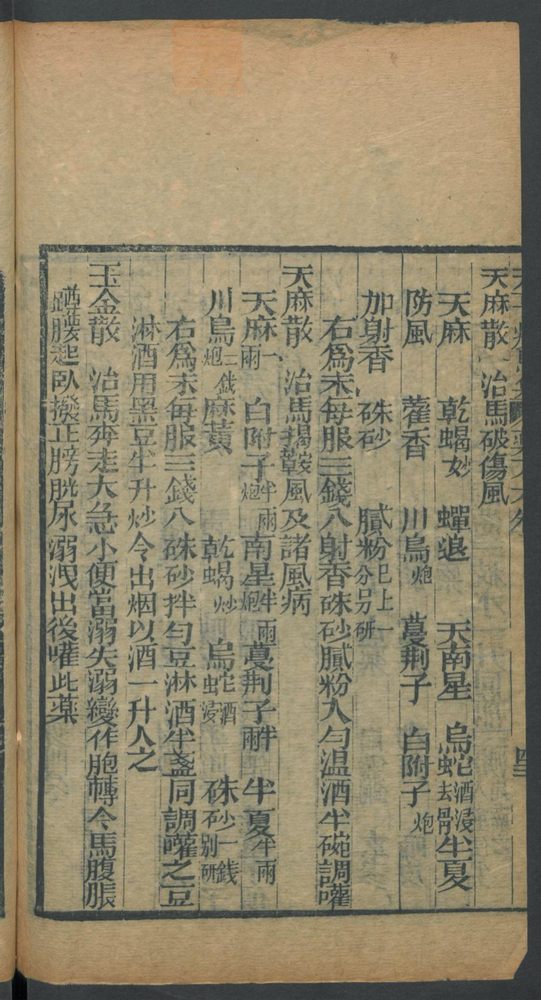 天麻散　治馬破傷風
天麻　乾蝎妙　蟬退　天南星　烏蛇酒浸去骨半夏
防風　藿香　川烏炮　蔓荆子　白附子炮
加射香　硃砂　膩粉已上一分另研
右為末每服三錢入射香硃砂膩粉入勻温酒半碗調嚾
天麻散　治馬揭鞍風及諸風病
天麻一兩　白附子半兩炮　南星半兩炮　蔓荆子半兩　半夏半兩
川烏二錢炮　麻黄　乾蝎炒　烏蛇酒浸　硃砂一錢別研
右為末每服三錢入硃砂拌勻豆淋酒半盞同調嚾之豆
淋酒用黑豆半升炒令出烟以酒一升入之
玉金散　治馬奔走大急小便當溺失溺變作胞轉令馬腹脹
起卧撥正膀胱尿溺洩出後嚾此藥